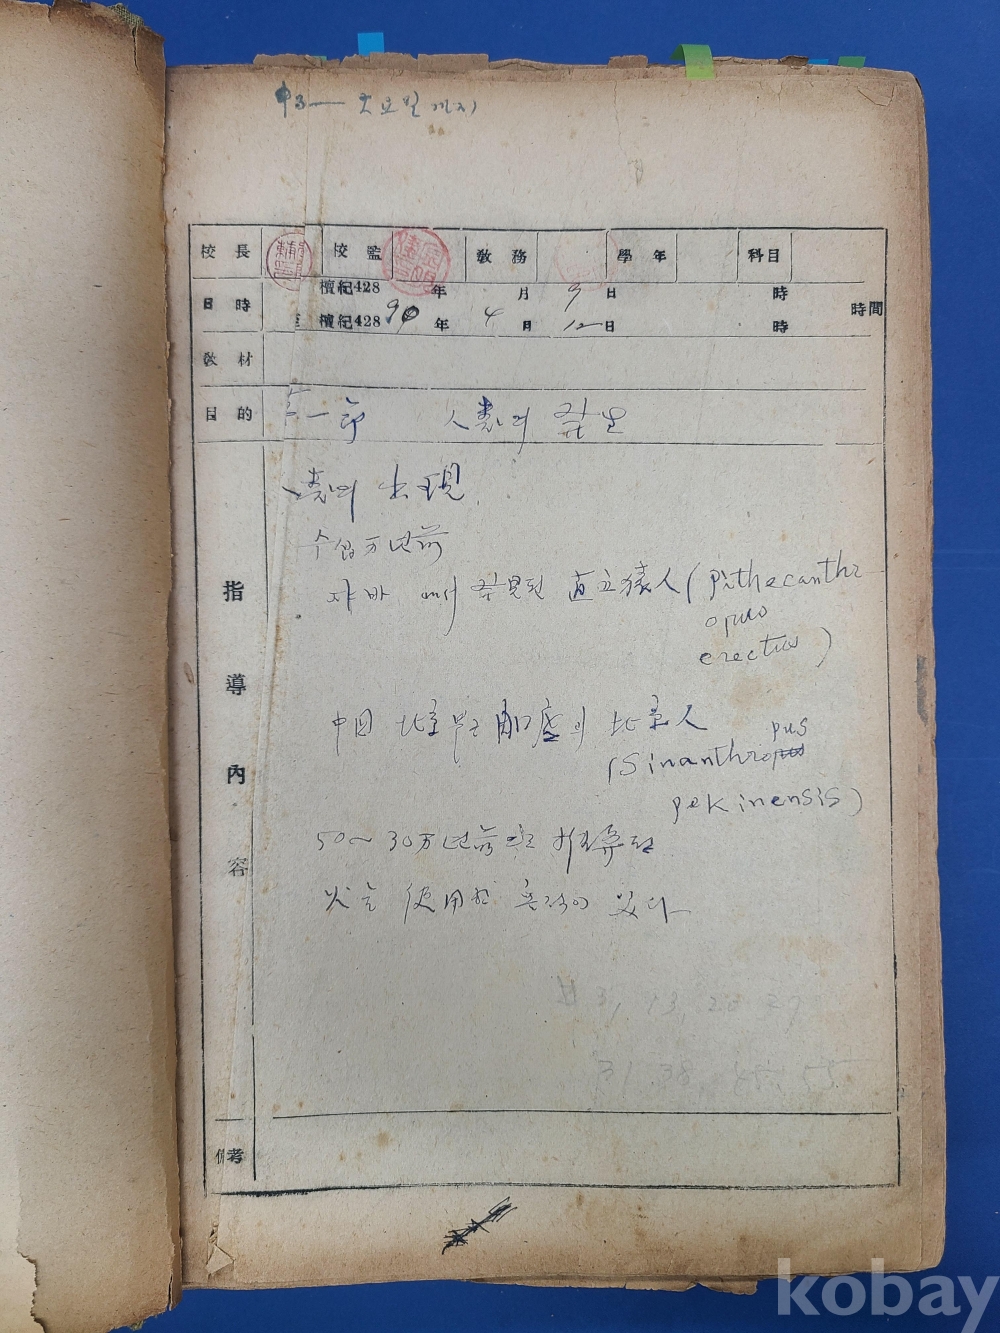 中3 — 土요일까지
校長 校監 敎務 學年 科目
日時 檀紀428 年 月 9 日 時
至 檀紀428 90 年 4 月 12 日 時 時間
敎材
目的 第一節 人類의 発見
指導內容
人類의 出現
수십万년前
쟈바에서 発見된 直立猿人(Pithecanthr-
opus
erectus)
中国 北京 周口店의 北京人
(Sinanthropus
pekinensis)
50~30万년前으로 推算된
火를 使用한 흔적이 있다
31 38 55
備考
kobay